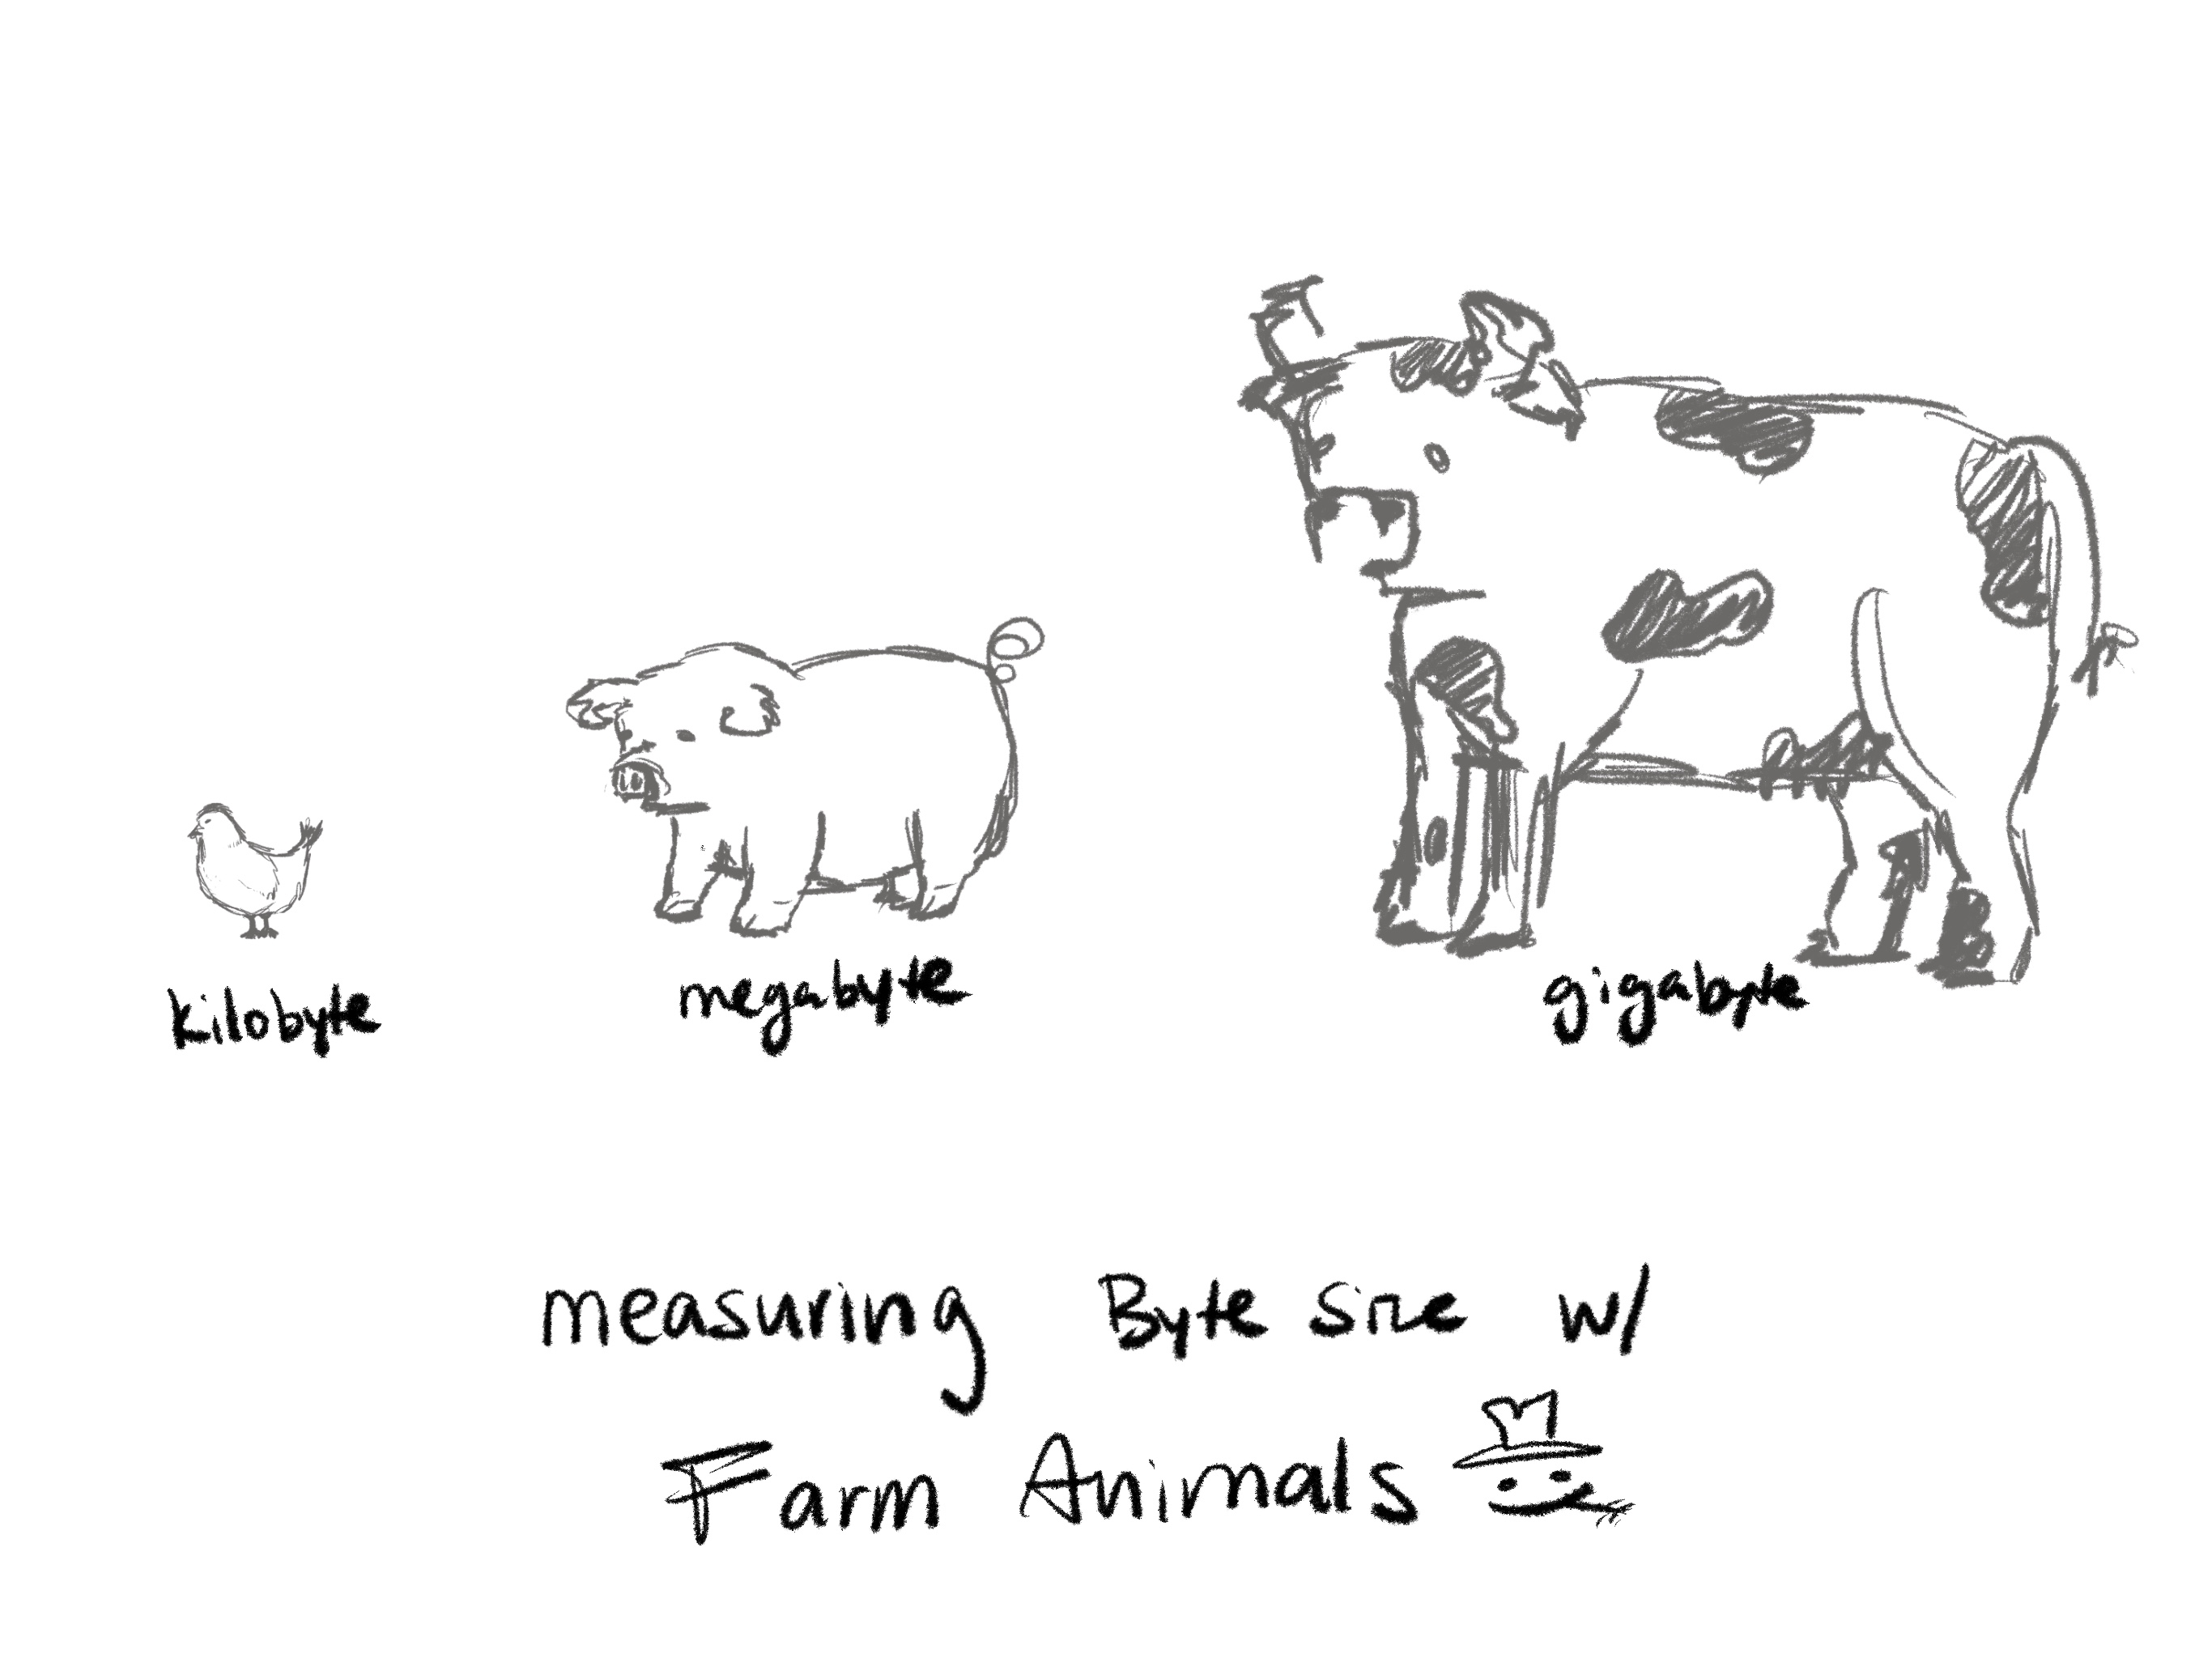 kilobyte
megabyte
gigabyte
measuring Byte size w/
Farm Animals